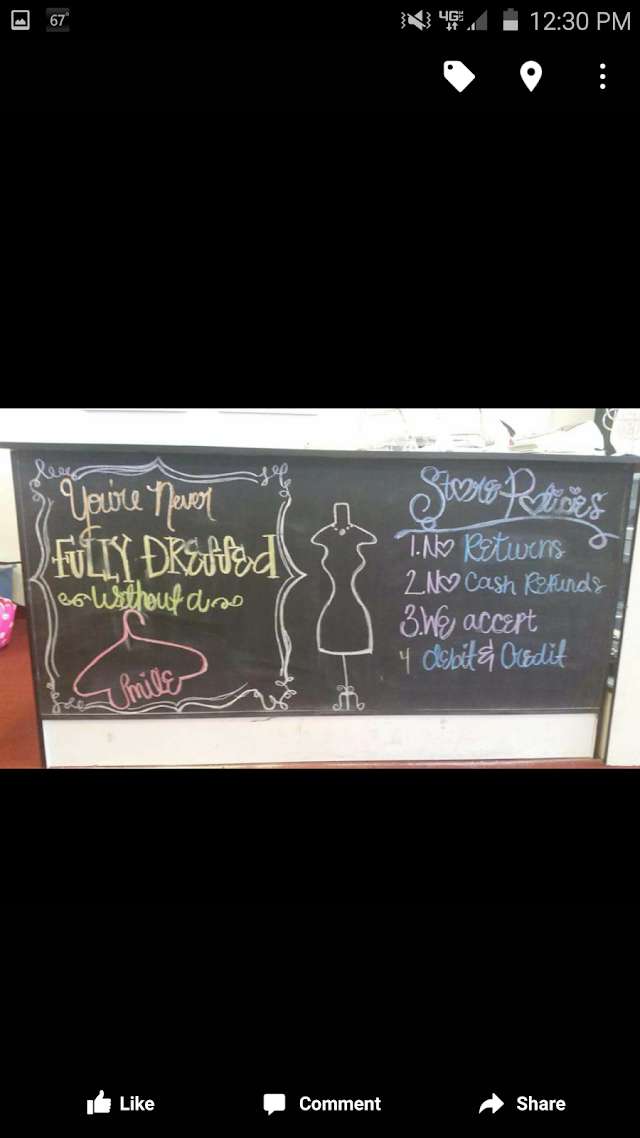 67°
4G
12:30 PM
You're Never
FULLY DRESSED
without a
Smile
Store Policies
1. No Returns
2. No Cash Refunds
3. We accept
4 debit & Credit
Like
Comment
Share